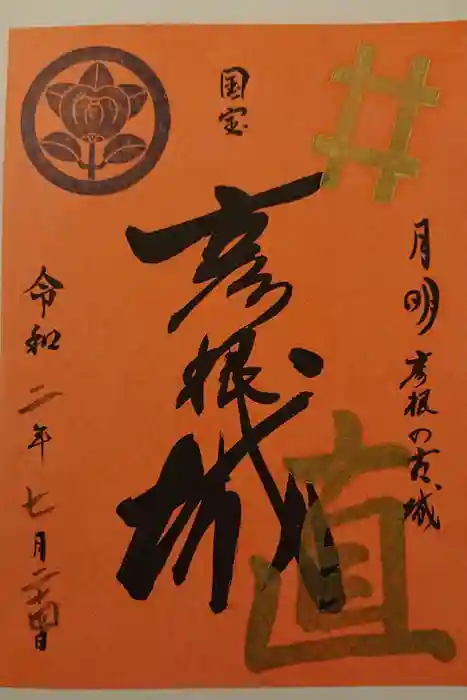 井
月明 彦根の古城
国宝
彦根城
直
令和二年七月二十四日